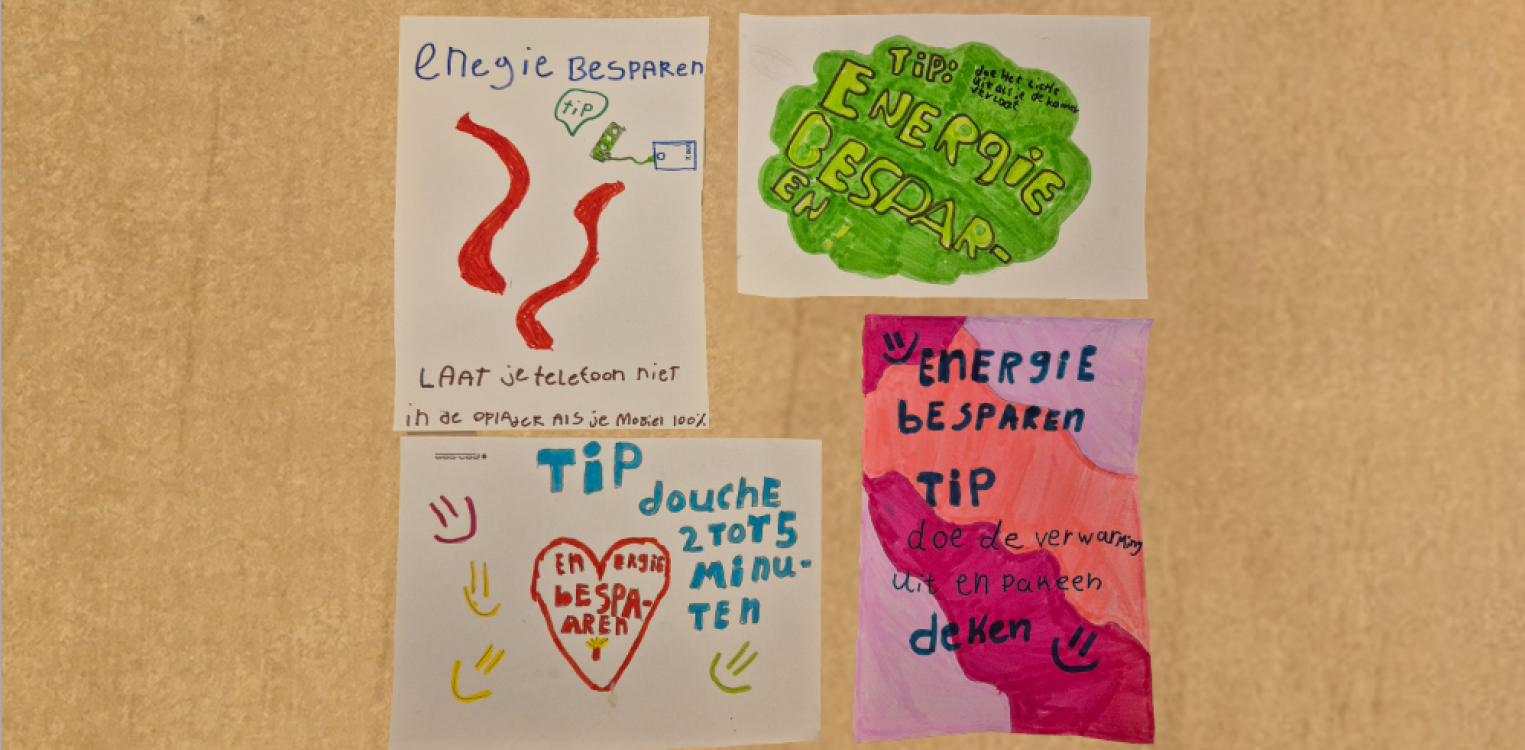 enegie BESPAREN
tip
100%
LAAT je telefoon niet
in de OPLADER ALS je Mobiel 100%
TiP:
doe het licht
uit als je de kamer
verlaat
ENERGiE
BESPAR-
EN!
TiP
douchE
2 TOT 5
MiNU-
TEN
EN ERGiE
bESPA-
AREN
ENERGiE
bESPAREN
TiP
doe de verwarming
uit en pak een
deken